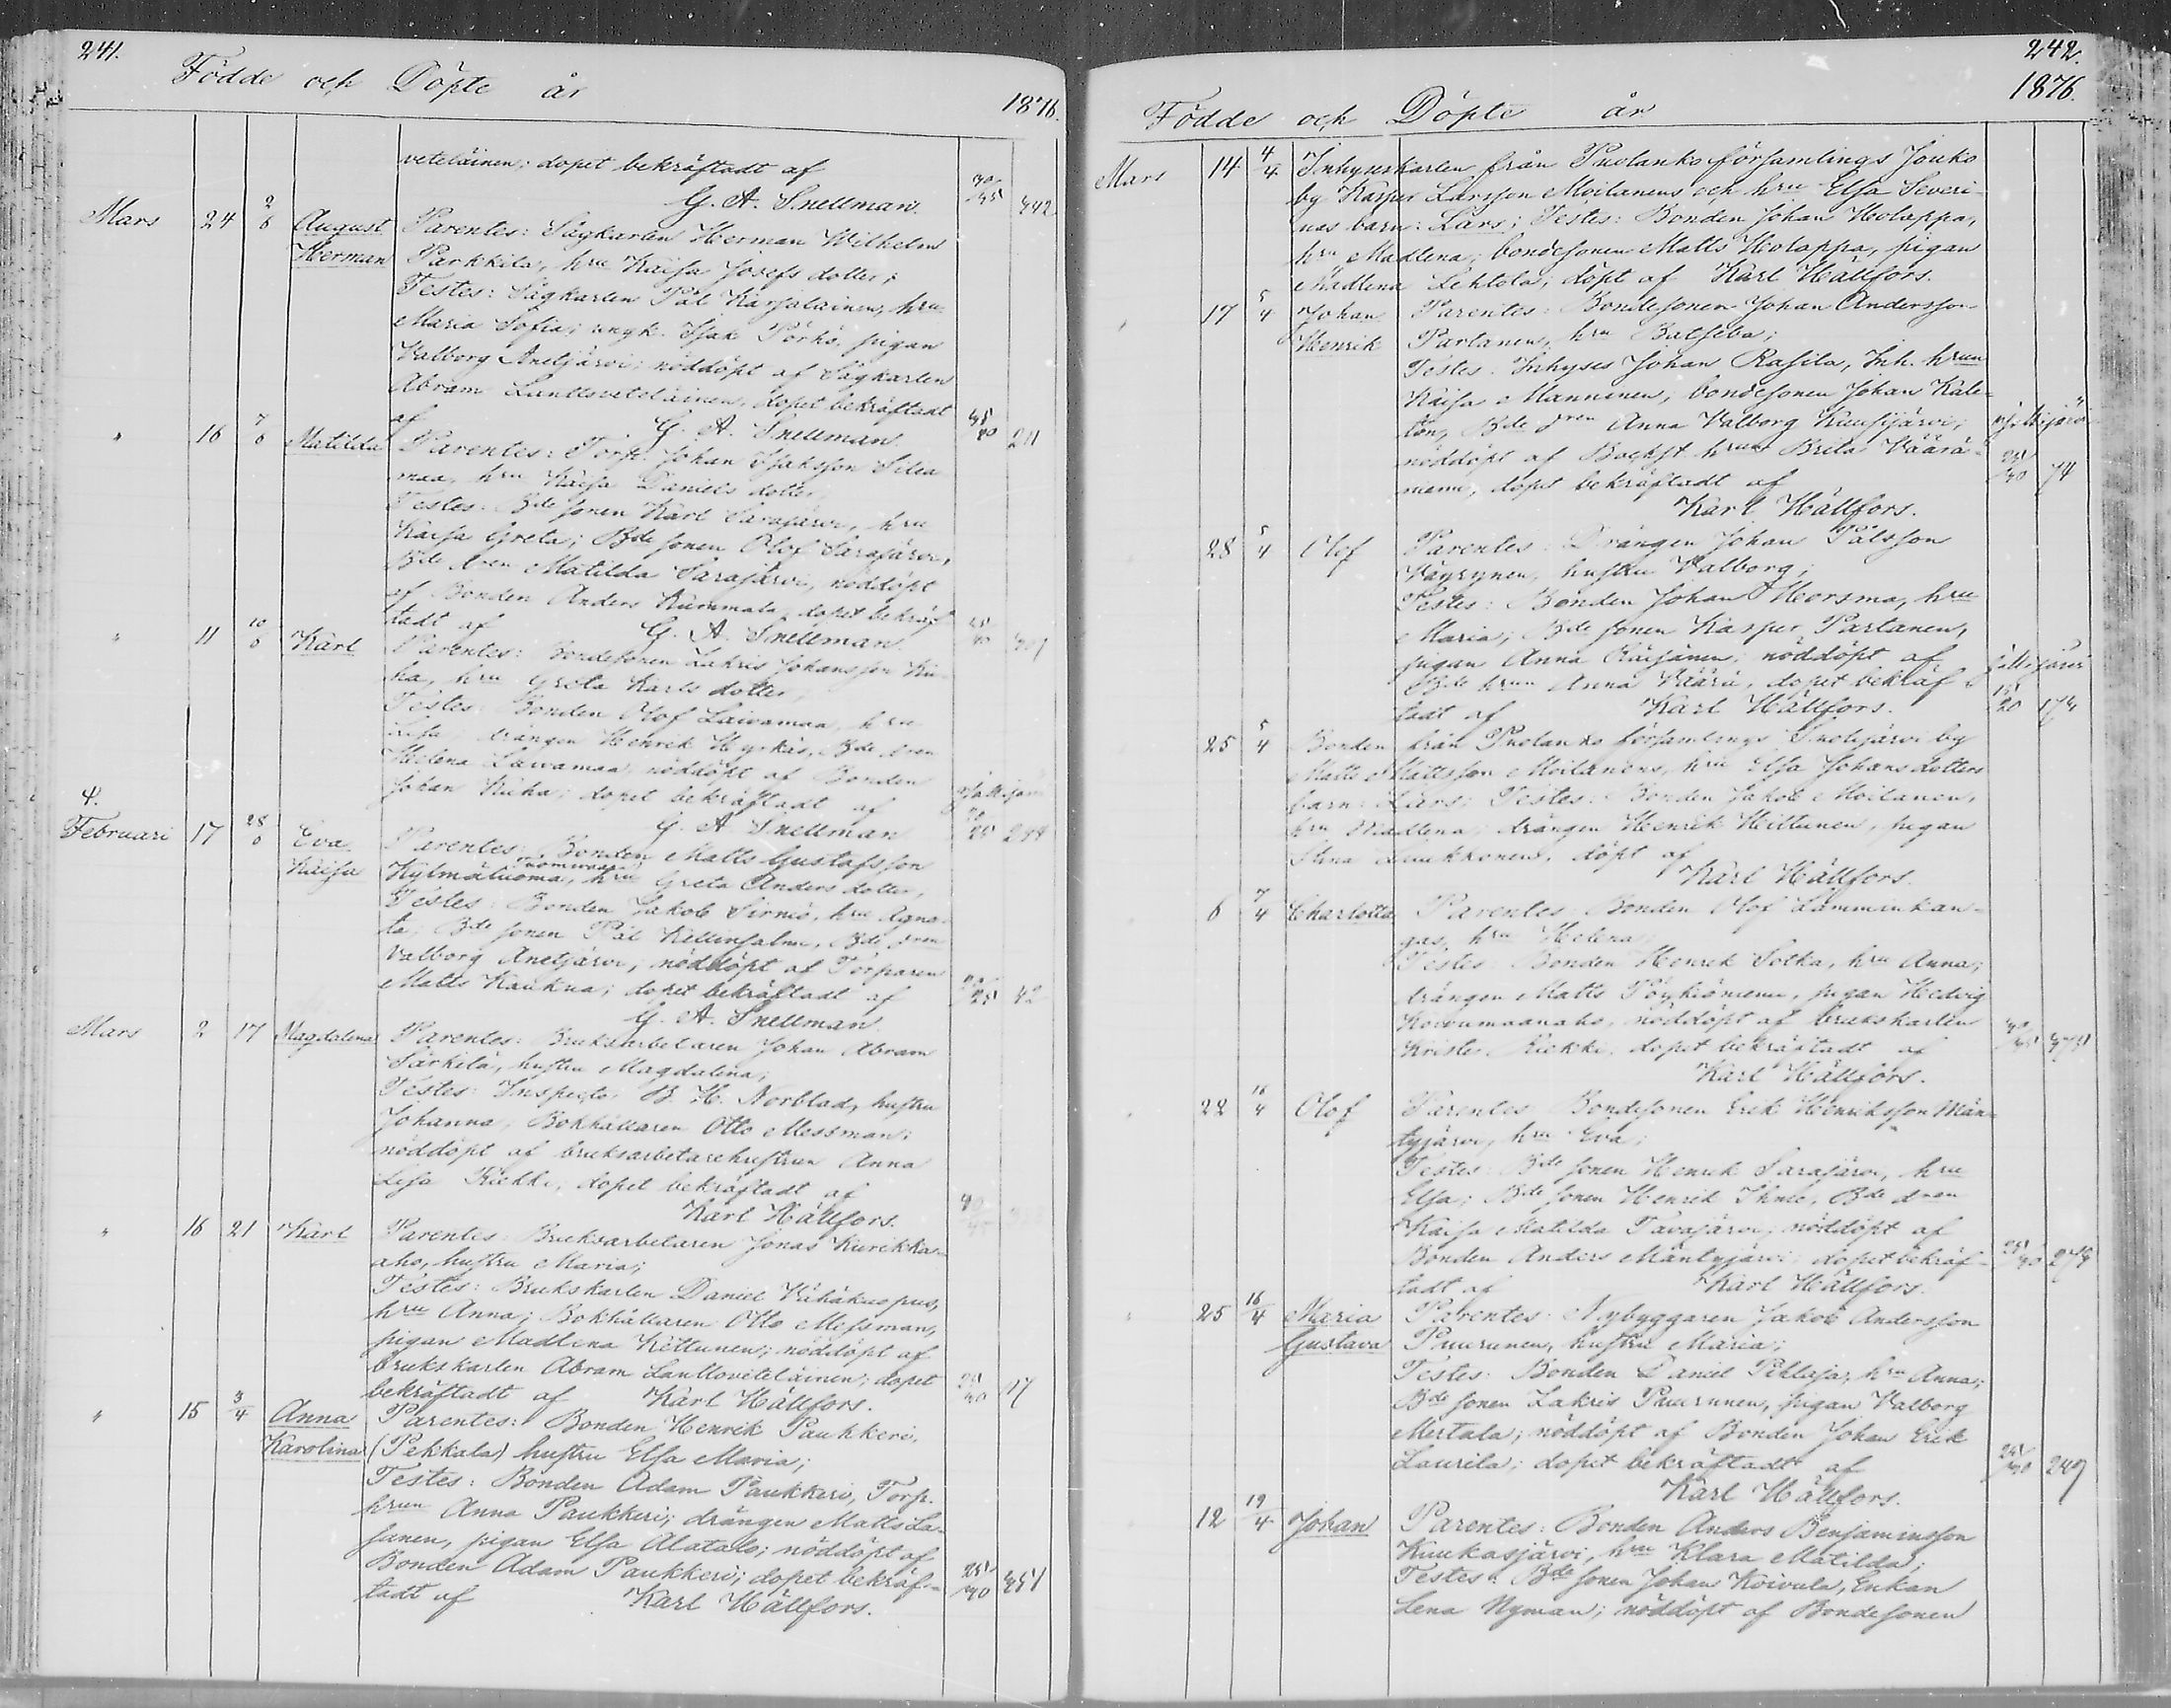 241.
Födde och Döpte år 1876.
veteläinen; dopet bekräftadt af
G. A. Snellman. 442
Mars 24 2/6 August Parentes: Sågkarlen Herman Wilhelm
Herman Parkkila, hru Kaisa Josefs dotter;
Testes: Sågkarlen Pål Karjalainen, hru
Maria Sofia; ungk. Isak Pörhö, pigan
Valborg Anetjärvi; nöddöpt af Sågkarlen
Abram Lanttoveteläinen, dopet bekräftadt
af G. A. Snellman. 211
" 16 7/6 Matilda Parentes: Torp. Johan Isaksson Silia
maa, hru Kaisa Daniels dotter,
Testes: Bde sonen Karl Sarajärvi, hru
Kaisa Greta; Bde sonen Olof Sarajärvi,
Bde dren Matilda Sarajärvi, nöddöpt
af Bonden Anders Kummala, dopet bekräf
tadt af G. A. Snellman.
" 11 10/6 Karl Parentes: Bondesonen Zakris Johansson Ku
ha, hru Greta Karls dotter,
Testes: Bonden Olof Laivamaa, hru
Lisa; drängen Henrik Hyrkäs, Bde dren
Helena Laivamaa; nöddöpt af Bonden
Johan Kuha; dopet bekräftadt af
G. A. Snellman
4.
Februari 17 28/6 Eva Parentes: Bonden Matts Gustafsson
Kaisa Kylmäluoma, hru Greta Anders dotter,
Testes: Bonden Jakob Sirniö, hru Agne-
ta; Bde sonen Pål Killinsalmi, Bde dren
Valborg Anetjärvi, nöddöpt af Torparen
Matts Kaukua; dopet bekräftadt af 42
G. A. Snellman.
Mars 2 17 Magdalena Parentes: Bruksarbetaren Johan Abram
Särkilä, hustru Magdalena;
Testes: Inspector B. H. Norblad, hustru
Johanna, Bokhållaren Otto Messman;
nöddöpt af bruksarbetarehustrun Anna
Lisa Kiekki; dopet bekräftadt af
Karl Hällfors.
" 16 21 Karl Parentes: Bruksarbetaren Jonas Kurikka-
aho, hustru Maria;
Testes: Brukskarlen Daniel Vähäkuopus,
hru Anna; Bokhållaren Otto Messman,
pigan Madlena Kettunen; nöddöpt af
brukskarlen Abram Lanttoveteläinen; dopet
bekräftadt af Karl Hällfors. 17
" 15 3/4 Anna Parentes: Bonden Henrik Paukkeri,
Karolina (Pekkala) hustru Elsa Maria;
Testes: Bonden Adam Paukkeri, Torp.
hrun Anna Paukkeri; drängen Matts La-
sanen, pigan Elsa Alatalo; nöddöpt af
Bonden Adam Paukkeri; dopet bekräf- 25/40 451
tadt af Karl Hällfors.
242.
Födde och Döpte år 1876.
Mars 14 4/4 Inhyseskarlen från Puolanko församlings Jouko
by Kasper Larsson Moilanens och hru Elsa Severi
nas barn: Lars; Testes: Bonden Johan Holappa,
hru Madlena; bondesonen Matts Holappa, pigan
Madlena Lehtola; döpt af Karl Hällfors.
17 5/4 Johan Parentes: Bondesonen Johan Andersson
Henrik Partanen, hru Batseba;
Testes: Inhyses Johan Rasila, Inh. hrun
Kaisa Manninen, bondesonen Johan Kale-
ton, Bde dren Anna Valborg Kuusijärvi;
nöddöpt af Backst. hrun Brita Väärä-
niemi, dopet bekräftadt af 25/30 74
Karl Hällfors.
28 5/4 Olof Parentes: Drängen Johan Pålsson
Väyrynen, hustru Valborg;
Testes: Bonden Johan Horsma, hru
Maria; Bde sonen Kasper Partanen,
pigan Anna Räisänen; nöddöpt af
Bde hrun Anna Väärä, dopet bekräf
tadt af Karl Hällfors. 15/20 174
25 5/4 Bonden från Puolanko församlings Suolijärvi by
Matts Mattsson Moilanens, hru Elsa Johans dotters
barn: Lars; Testes: Bonden Jakob Moilanen,
hru Madlena; drängen Henrik Heiltunen, pigan
Stina Luukkonen, döpt af
Karl Hällfors.
6 7/4 Charlotta Parentes: Bonden Olof Lamminkan-
gas, hru Helena;
Testes: Bonden Henrik Sotka, hru Anna;
drängen Matts Pöykiöniemi, pigan Hedvig
Koivumaanaho, nöddöpt af brukskarlen
Krister Kiekki, dopet bekräftadt af
Karl Hällfors.
22 16/4 Olof Parentes: Bondesonen Erik Henriksson Män-
tyjärvi, hru Eva;
Testes: Bde sonen Henrik Sarajärvi, hru
Elsa; Bde sonen Henrik Ihme, Bde dren
Kaisa Matilda Tavajärvi; nöddöpt af
Bonden Anders Mäntyjärvi; dopet bekräf-
tadt af Karl Hällfors.
25 16/4 Maria Parentes: Nybyggaren Jakob Andersson
Gustava Puurunen, hustru Maria;
Testes: Bonden Daniel Pehlaja, hru Anna;
Bde sonen Zakris Puurunen, pigan Valborg
Mertala; nöddöpt af Bonden Johan Erik
Laurila; dopet bekräftadt af 247
Karl Hällfors.
12 19/4 Johan Parentes: Bonden Anders Benjaminsson
Kuukasjärvi, hru Klara Matilda;
Testes: Bde sonen Johan Koivula, Enkan
Lena Nyman; nöddöpt af Bondesonen